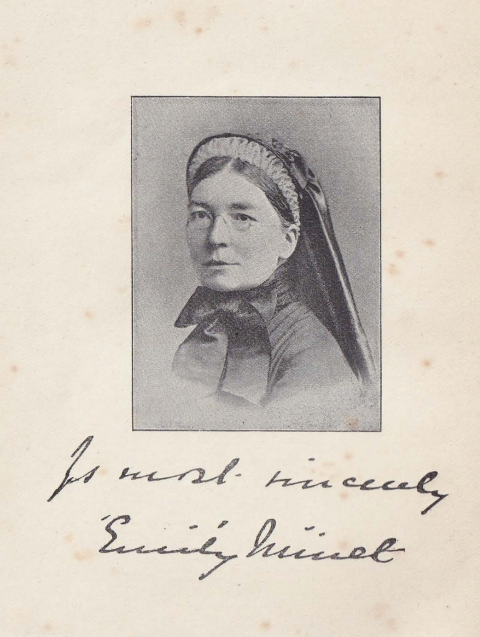 Yrs most sincerely
Emily Minet